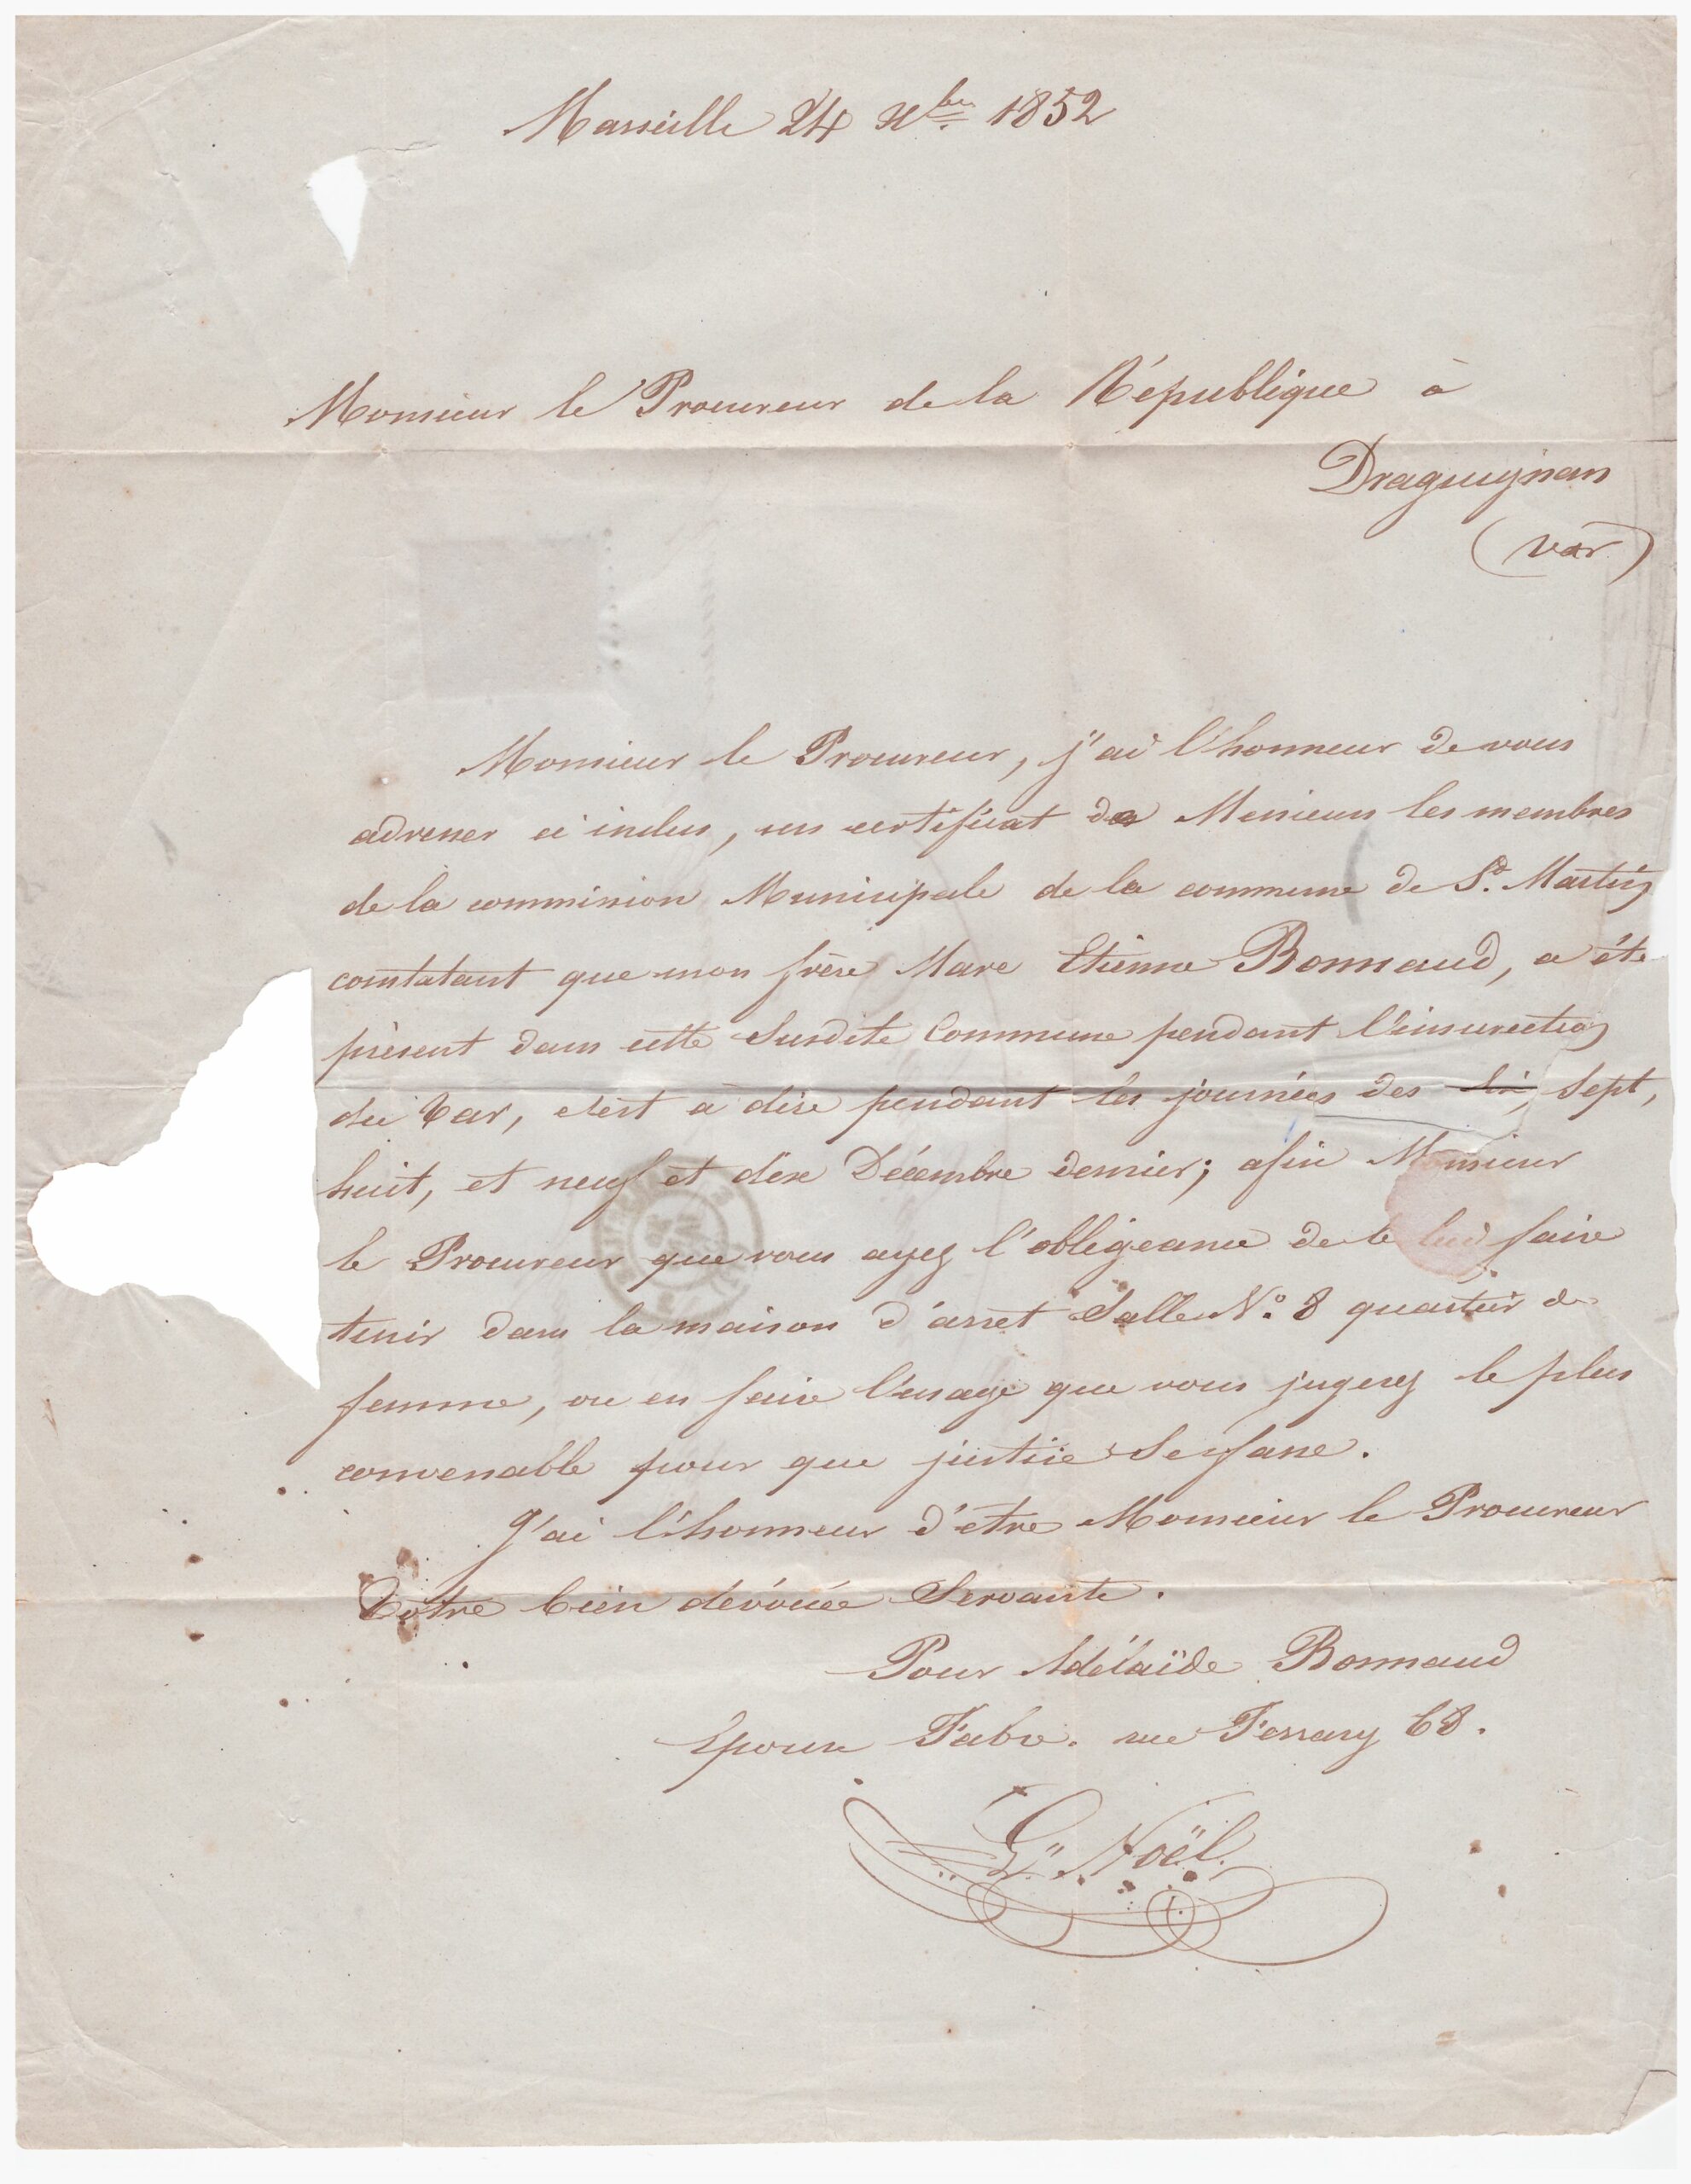 Marseille 24 xbre 1852
Monsieur le Procureur de la République à
Draguignan
(var)
Monsieur le Procureur, j'ai l'honneur de vous
adresser ci inclus, un certificat de Messieurs les membres
de la commission Municipale de la commune de St. Martin
constatant que mon frère Marc Etienne Bonnaud, a été
présent dans cette Susdite Commune pendant l'insurection
du Var, c'est à dire pendant les journées des Six, Sept,
huit, et neuf et dix Décembre dernier; afin Monsieur
le Procureur que vous ayez l'obligeance de le lui faire
tenir dans la maison d'arret Salle N.° 8 quartier de
femme, ou en faire l'usage que vous jugerez le plus
convenable pour que justice Se fasse.
J'ai l'honneur d'etre Monsieur le Procureur
Votre bien dévouée Servante.
Pour Adélaïde Bonnaud
Epouse Fabre. rue Ferrary 68.
Noël.